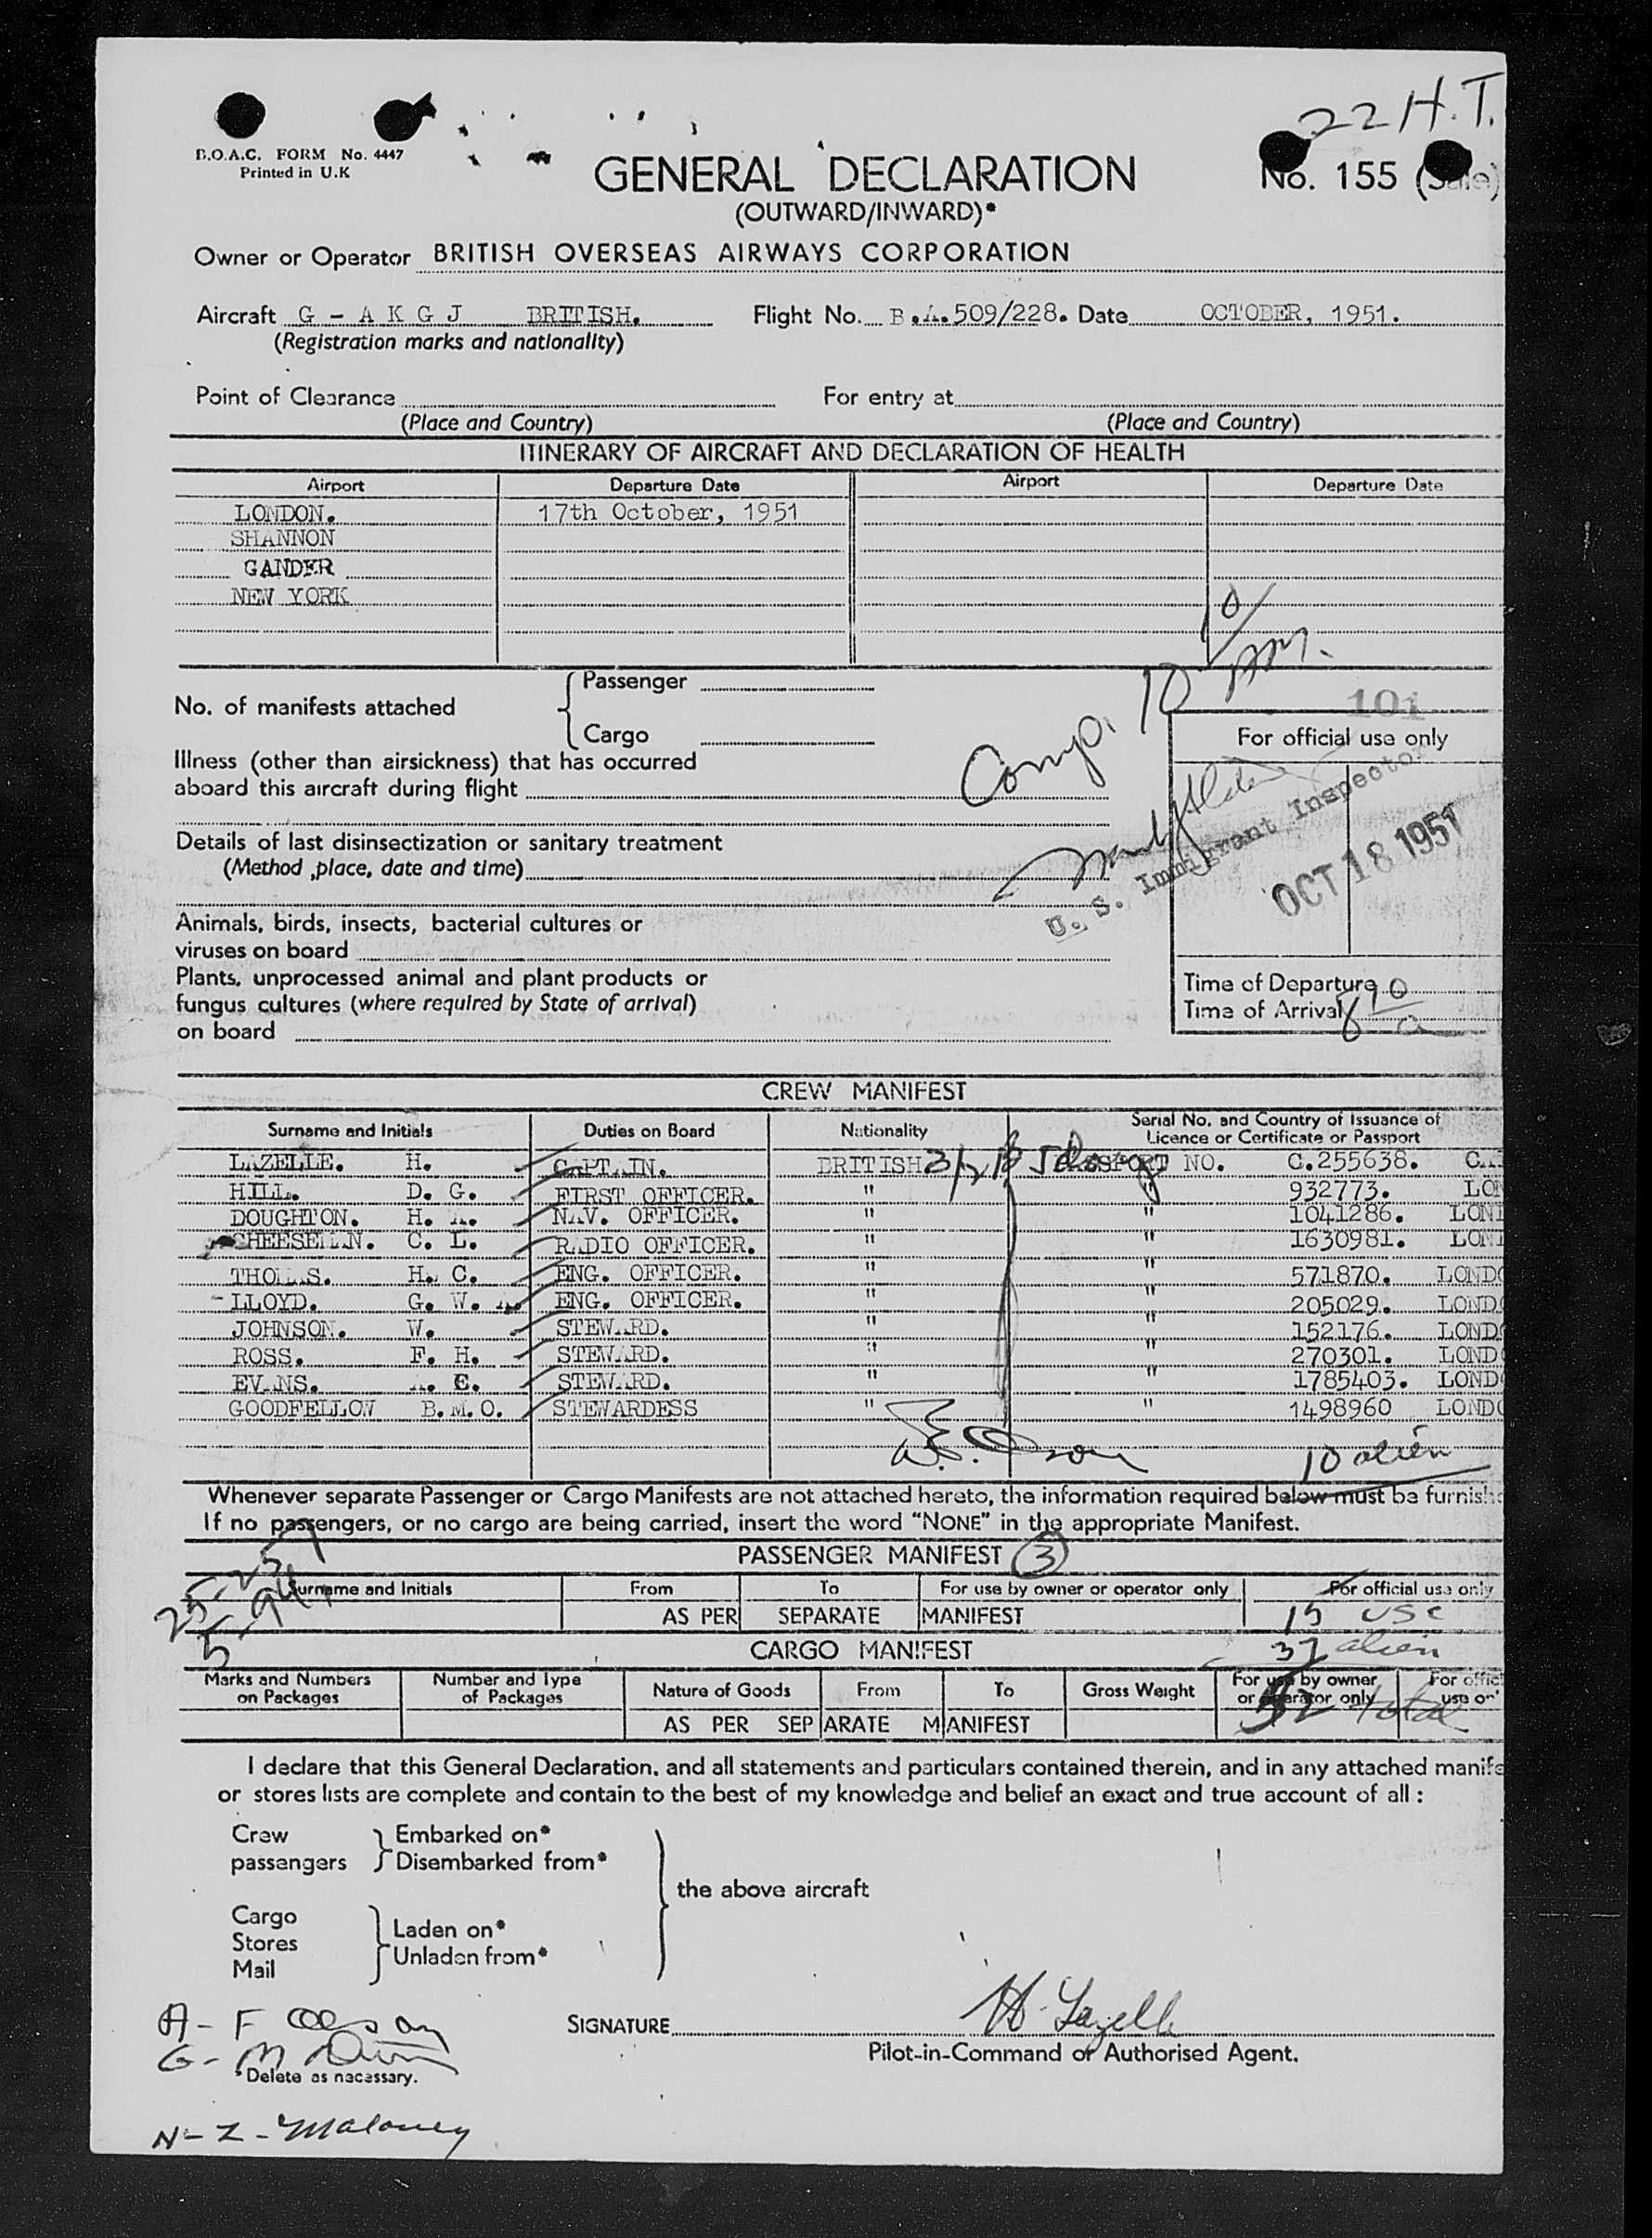 22 H.T.
B.O.A.C. FORM No. 4447
Printed in U.K
GENERAL DECLARATION
No. 155
(OUTWARD/INWARD)*
Owner or Operator BRITISH OVERSEAS AIRWAYS CORPORATION
Aircraft G - A K G J BRITISH. Flight No. B.A.509/228. Date OCTOBER, 1951.
(Registration marks and nationality)
Point of Clearance For entry at
(Place and Country) (Place and Country)
ITINERARY OF AIRCRAFT AND DECLARATION OF HEALTH
Airport Departure Date Airport Departure Date
LONDON. 17th October, 1951
SHANNON
GANDER
NEW YORK
No. of manifests attached
Passenger
Cargo
Comp. 10
101
For official use only
Illness (other than airsickness) that has occurred
aboard this aircraft during flight
Details of last disinsectization or sanitary treatment
(Method ,place, date and time)
U. S. Immigrant Inspector
OCT 18 1951
Animals, birds, insects, bacterial cultures or
viruses on board
Plants, unprocessed animal and plant products or
fungus cultures (where required by State of arrival)
on board
Time of Departure
Time of Arrival 8 10 a
CREW MANIFEST
Surname and Initials Duties on Board Nationality Serial No. and Country of Issuance of
Licence or Certificate or Passport
LAZELLE. H. CAPTAIN. BRITISH PASSPORT NO. C.255638.
HILL. D. G. FIRST OFFICER. " " 932773. LON
DOUGHTON. H. A. NAV. OFFICER. " " 1041286. LON
CHEESEMAN. C. L. RADIO OFFICER. " " 1630981. LON
THOMAS. H. C. ENG. OFFICER. " " 571870. LONDO
LLOYD. G. W. A. ENG. OFFICER. " " 205029. LOND
JOHNSON. W. STEWARD. " " 152176. LONDO
ROSS. F. H. STEWARD. " " 270301. LOND
EVANS. A. E. STEWARD. " " 1785403. LOND
GOODFELLOW B.M.O. STEWARDESS " " 1498960 LONDO
10 alien
Whenever separate Passenger or Cargo Manifests are not attached hereto, the information required below must be furnish
If no passengers, or no cargo are being carried, insert the word "NONE" in the appropriate Manifest.
PASSENGER MANIFEST 3
Surname and Initials From To For use by owner or operator only For official use only
AS PER SEPARATE MANIFEST 15 USC
CARGO MANIFEST 37 alien
Marks and Numbers on Packages Number and Type of Packages Nature of Goods From To Gross Weight For use by owner or operator only For offic use on
52 total
AS PER SEPARATE MANIFEST
I declare that this General Declaration, and all statements and particulars contained therein, and in any attached manife
or stores lists are complete and contain to the best of my knowledge and belief an exact and true account of all :
Crew
passengers
Embarked on*
Disembarked from*
the above aircraft
Cargo
Stores
Mail
Laden on*
Unladen from*
SIGNATURE H. Lazelle
Pilot-in-Command or Authorised Agent.
*Delete as necessary.
N- Z- Maloney